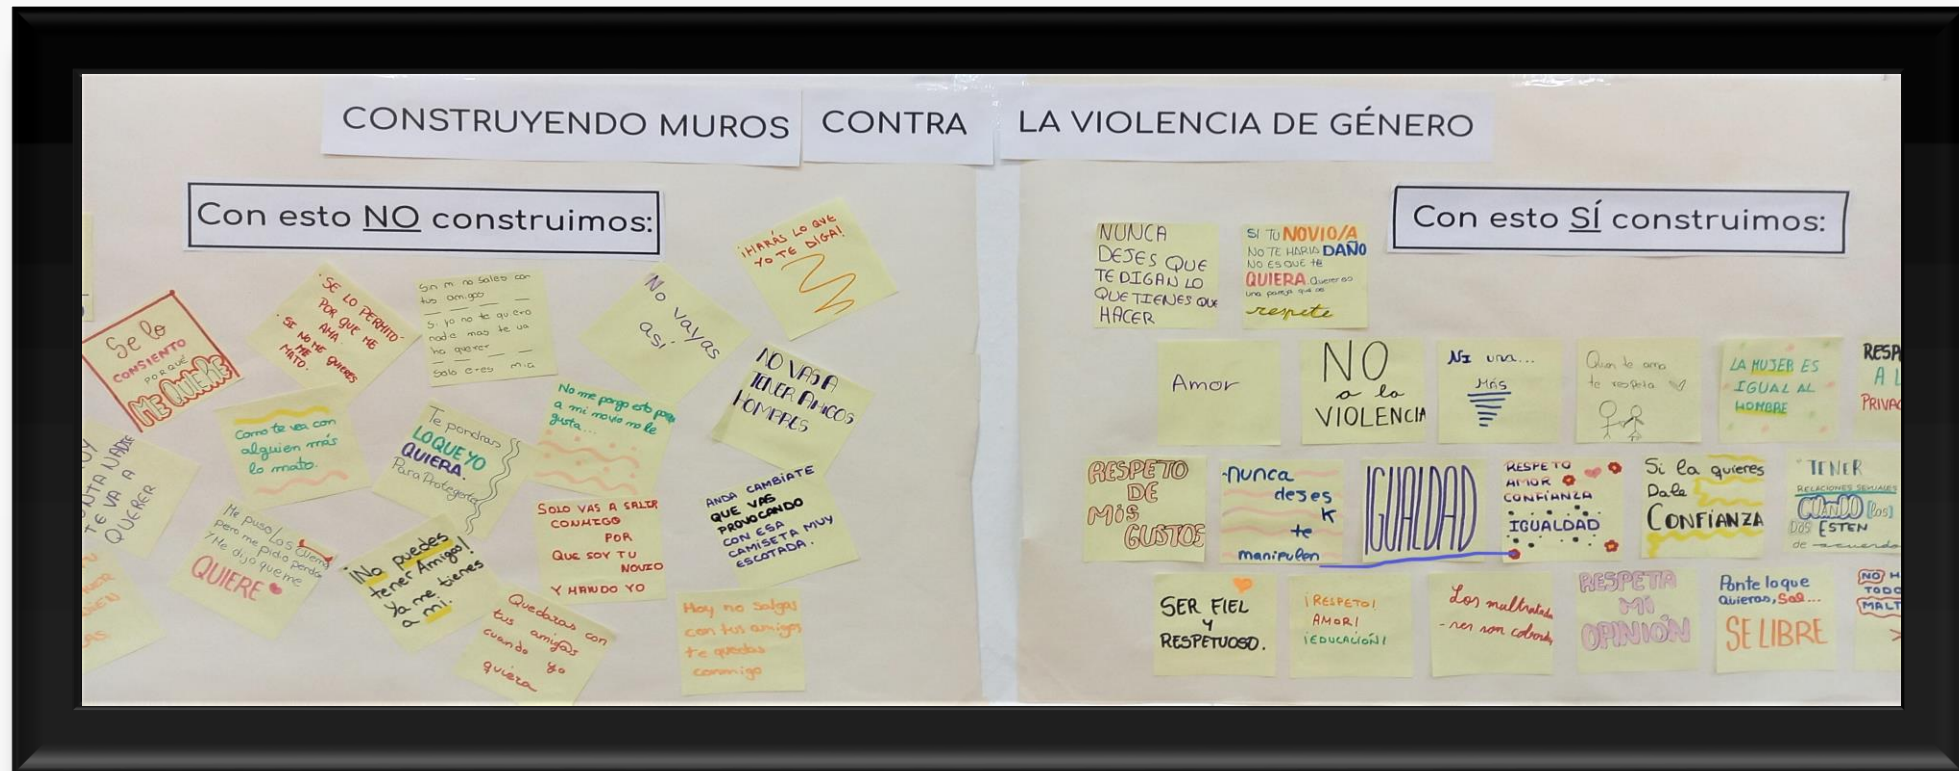 CONSTRUYENDO MUROS CONTRA LA VIOLENCIA DE GÉNERO
Con esto NO construimos:
¡HARÁS LO QUE
YO TE DIGA!
SE LO PERMITO
POR QUE ME
AMA
SI NO ME QUIERES
ME
MATO.
Sin mi no sales con
tus amigos
Si yo no te quiero
nadie mas te va
ha querer
Solo eres mia
No vayas
así
Se lo
CONSIENTO
PORQUÉ
ME QUIERE
NO VAS A
TENER AMIGOS
HOMBRES
Como te vea con
alguien más
lo mato.
Te pondras
LO QUE YO
QUIERA.
Para Protegerte
No me pongo esto porq
a mi novio no le
gusta...
NADIE
TE VA A
QUERER
Me puso los cuernos
pero me pidio perdon
Y Me dijo que me
QUIERE
¡No puedes
tener Amigos!
Ya me tienes
a mi.
SOLO VAS A SALIR
CONMIGO
POR
QUE SOY TU
NOVIO
Y MANDO YO
ANDA CAMBIATE
QUE VAS
PROVOCANDO
CON ESA
CAMISETA MUY
ESCOTADA.
Quedaras con
tus amig@s
cuando yo
quiera
Hoy no salgas
con tus amigos
te quedas
conmigo
Con esto SÍ construimos:
NUNCA
DEJES QUE
TE DIGAN LO
QUE TIENES QUE
HACER
SI TU NOVIO/A
NO TE HARIA DAÑO
NO ES QUE te
QUIERA Querer es
una pareja que os
respete
Amor
NO
a la
VIOLENCIA
NI una...
Más
Quien te ama
te respeta
LA MUJER ES
IGUAL AL
HOMBRE
RESP
A L
PRIVAC
RESPETO
DE
MIS
GUSTOS
-nunca
dejes
K
te
manipulen
IGUALDAD
RESPETO
AMOR
CONFIANZA
IGUALDAD
Si la quieres
Dale
CONFIANZA
TENER
RELACIONES SEXUALES
CUANDO (los)
DOS ESTEN
de acuerdo
SER FIEL
Y
RESPETUOSO.
¡RESPETO!
AMOR!
¡EDUCACIÓN!
Los maltrata
-res son cobardes
RESPETA
MI
OPINIÓN
Ponte lo que
quieras, Sal...
SE LIBRE
NO H
TODO
MALT